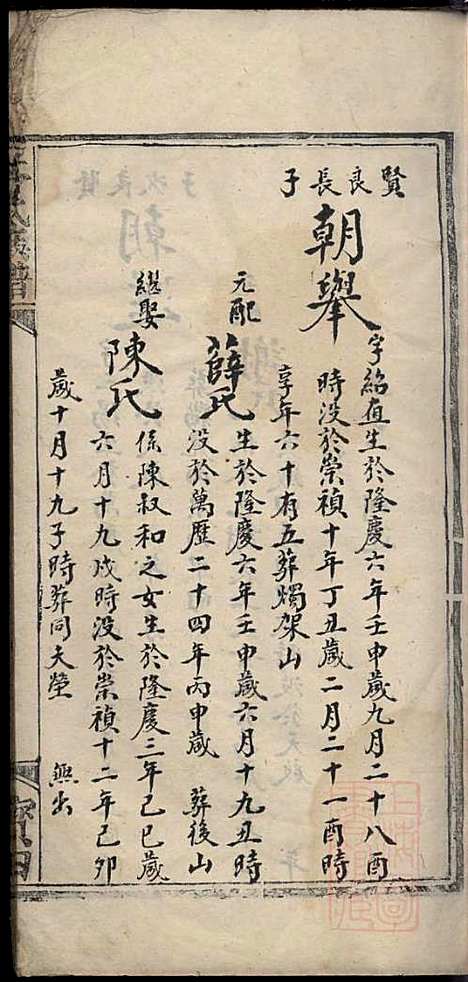 賢良長子
朝舉
字紹直生於隆慶六年壬申歲九月二十八酉
時没於崇禎十年丁丑歲二月二十一酉時
享年六十有五葬燭架山
元配
薛氏
生於隆慶六年壬申歲六月十九丑時
没於萬歷二十四年丙申歲 葬後山
繼娶
陳氏
係陳叔和之女生於隆慶三年己巳歲
六月十九戌時没於崇禎十二年己卯
歲十月十九子時葬同夫塋 無出